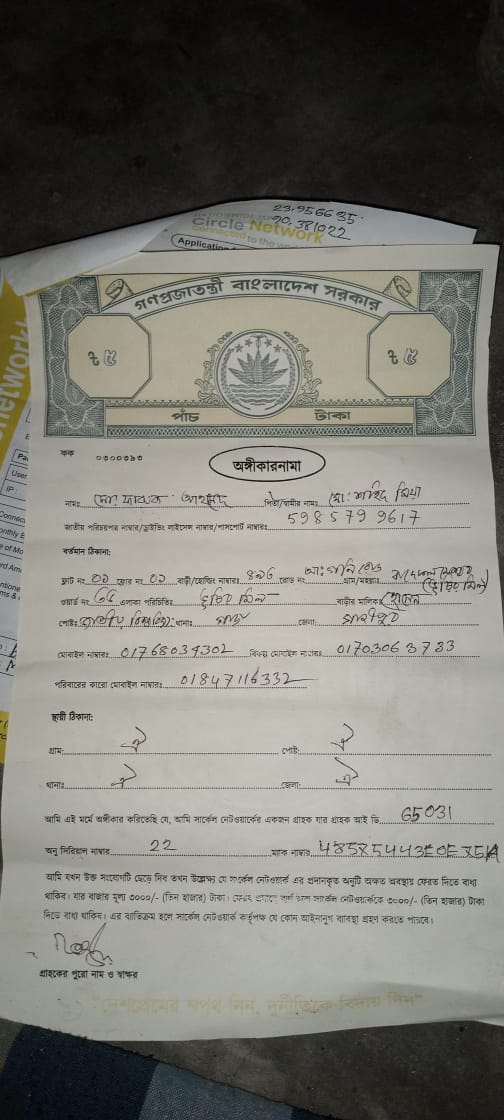 23.956635
90.381022
Circle Network
connected to the
Application
গণপ্রজাতন্ত্রী বাংলাদেশ সরকার
৳ ৫
৳ ৫
পাঁচ টাকা
কক ০৩০০৩৯৩
অঙ্গীকারনামা
নামঃ মোঃ ফারুক আহমেদ পিতা/স্বামীর নামঃ মোঃ শহিদ মিয়া
জাতীয় পরিচয়পত্র নাম্বার/ড্রাইভিং লাইসেন্স নাম্বার/পাসপোর্ট নাম্বারঃ 5985799617
বর্তমান ঠিকানা:
ফ্লাট নং ০১ ফ্লোর নং ০১ বাড়ী/হোল্ডিং নাম্বারঃ ৪৯৬ রোড নং আঃ গনি রোড গ্রাম/মহল্লাঃ
ওয়ার্ড নং ৩৫ এলাকা পরিচিতিঃ বাড়ীর মালিকঃ হোসেন
পোষ্টঃ জাতীয় বিশ্ববিঃ থানাঃ গাছা জেলাঃ গাজীপুর
মোবাইল নাম্বারঃ 01768034302 বিকল্প মোবাইল নাম্বারঃ 01703063733
পরিবারের কারো মোবাইল নাম্বারঃ 01847116332
স্থায়ী ঠিকানা:
গ্রাম: ঐ পোষ্ট: ঐ
থানাঃ ঐ জেলা: ঐ
আমি এই মর্মে অঙ্গীকার করিতেছি যে, আমি সার্কেল নেটওয়ার্কের একজন গ্রাহক যার গ্রাহক আই ডি 65031
অনু সিরিয়াল নাম্বার 22 ম্যাক নাম্বার
আমি যখন উক্ত সংযোগটি ছেড়ে দিব তখন উল্লেক্ষ্য যে সার্কেল নেটওয়ার্ক এর প্রদানকৃত অনুটি অক্ষত অবস্থায় ফেরত দিতে বাধ্য
থাকিব। যার বাজার মূল্য ৩০০০/- (তিন হাজার) টাকা। হলে সার্কেল নেটওয়ার্ককে ৩০০০/- (তিন হাজার) টাকা
দিতে বাধ্য থাকিব। এর ব্যতিক্রম হলে সার্কেল নেটওয়ার্ক কর্তৃপক্ষ যে কোন আইনানুগ ব্যবস্থা গ্রহণ করতে পারবে।
গ্রাহকের পুরো নাম ও স্বাক্ষর
"দেশপ্রেমের শপথ নিন, দুর্নীতিকে বিদায় দিন"